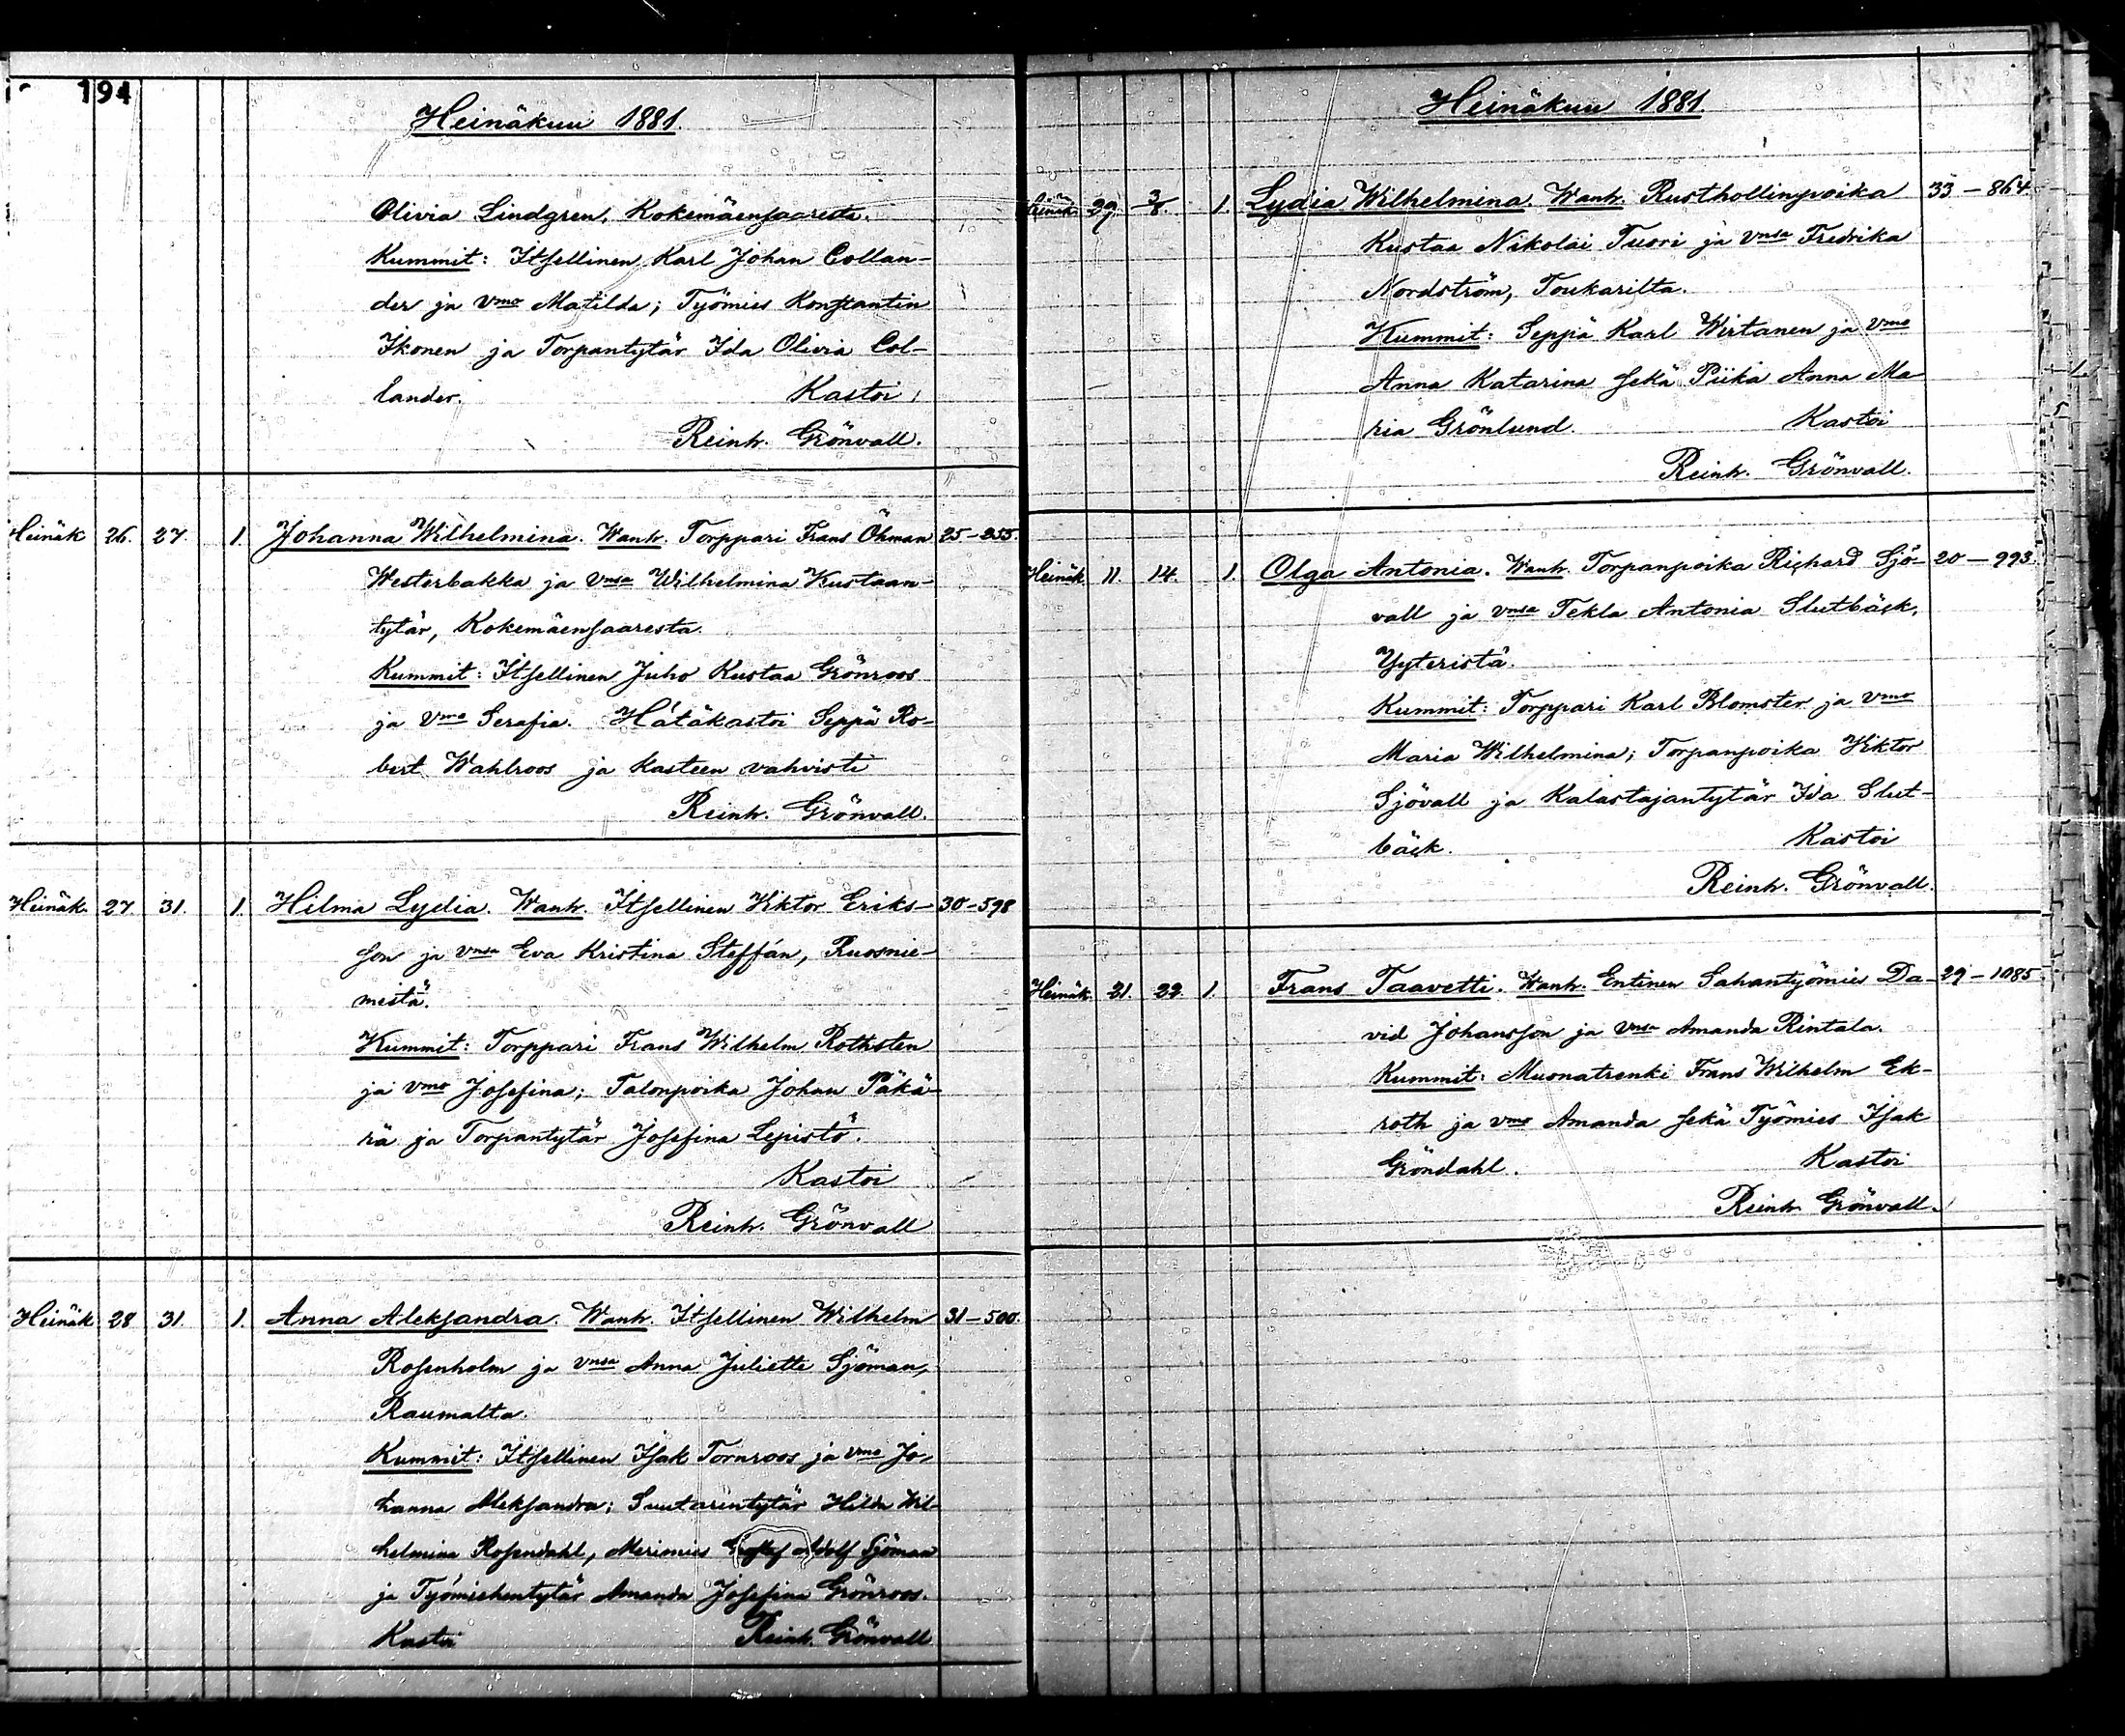 194
Heinäkuu 1881.
Olivia Lindgren, Kokemäensaaresta.
Kummit: Itsellinen Karl Johan Collan-
der ja vmo Matilda; Työmies Konstantin
Ikonen ja Torpantytär Ida Olivia Col-
lander. Kastoi
Reinh. Grönvall.
Heinäk 26. 27. 1. Johanna Wilhelmina. Wanh. Torppari Frans Öhman 25-255.
Westerbakka ja vnsa Wilhelmina Kustaan-
tytär, Kokemäensaaresta.
Kummit: Itsellinen Juho Kustaa Grönroos
ja vmo Serafia. Hätäkastoi Seppä Ro-
bert Wahlroos ja kasteen vahvisti
Reinh. Grönvall.
Heinäk. 27. 31. 1. Hilma Lydia. Wanh. Itsellinen Viktor Eriks- 30-598
son ja vnsa Eva Kristina Steffán, Ruosnie-
mestä.
Kummit: Torppari Frans Wilhelm Rothsten
ja vmo Josefina; Talonpoika Johan Päkä-
rä ja Torpantytär Josefina Lepistö.
Kastoi
Reinh. Grönvall
Heinäk 28 31. 1. Anna Aleksandra. Wanh. Itsellinen Wilhelm 31-500.
Rosenholm ja vnsa Anna Juliette Sjöman,
Raumalta.
Kummit: Itsellinen Isak Tornroos ja vmo Jo-
hanna Aleksandra; Suutarintytär Hilda Wil-
helmina Rosendahl, Merimies Adolf Sjöman
ja Työmiehentytär Amanda Josefina Grönroos.
Kastoi Reinh. Grönvall
Heinäkuu 1881.
Heinäk. 29. 3/8. 1. Lydia Wilhelmina. Wanh. Rusthollinpoika 33-864.
Kustaa Nikolai Tuori ja vnsa Fredrika
Nordström, Toukarilta.
Kummit: Seppä Karl Wirtanen ja vmo
Anna Katarina sekä Piika Anna Ma-
ria Grönlund. Kastoi
Reinh. Grönvall.
Heinäk. 11. 14. 1. Olga Antonia. Wanh. Torpanpoika Richard Sjö- 20-993.
vall ja vnsa Tekla Antonia Slutbäck,
Yyteristä.
Kummit: Torppari Karl Blomster ja vmo
Maria Wilhelmina; Torpanpoika Viktor
Sjövall ja Kalastajantytär Ida Slut-
bäck. Kastoi
Reinh. Grönvall.
Heinäk. 21. 22. 1. Frans Taavetti. Wanh. Entinen Sahantyömies Da- 29-1085.
vid Johansson ja vnsa Amanda Rintala.
Kummit: Muonatrenki Frans Wilhelm Ek-
roth ja vmo Amanda sekä Työmies Isak
Gröndahl. Kastoi
Reinh. Grönvall.